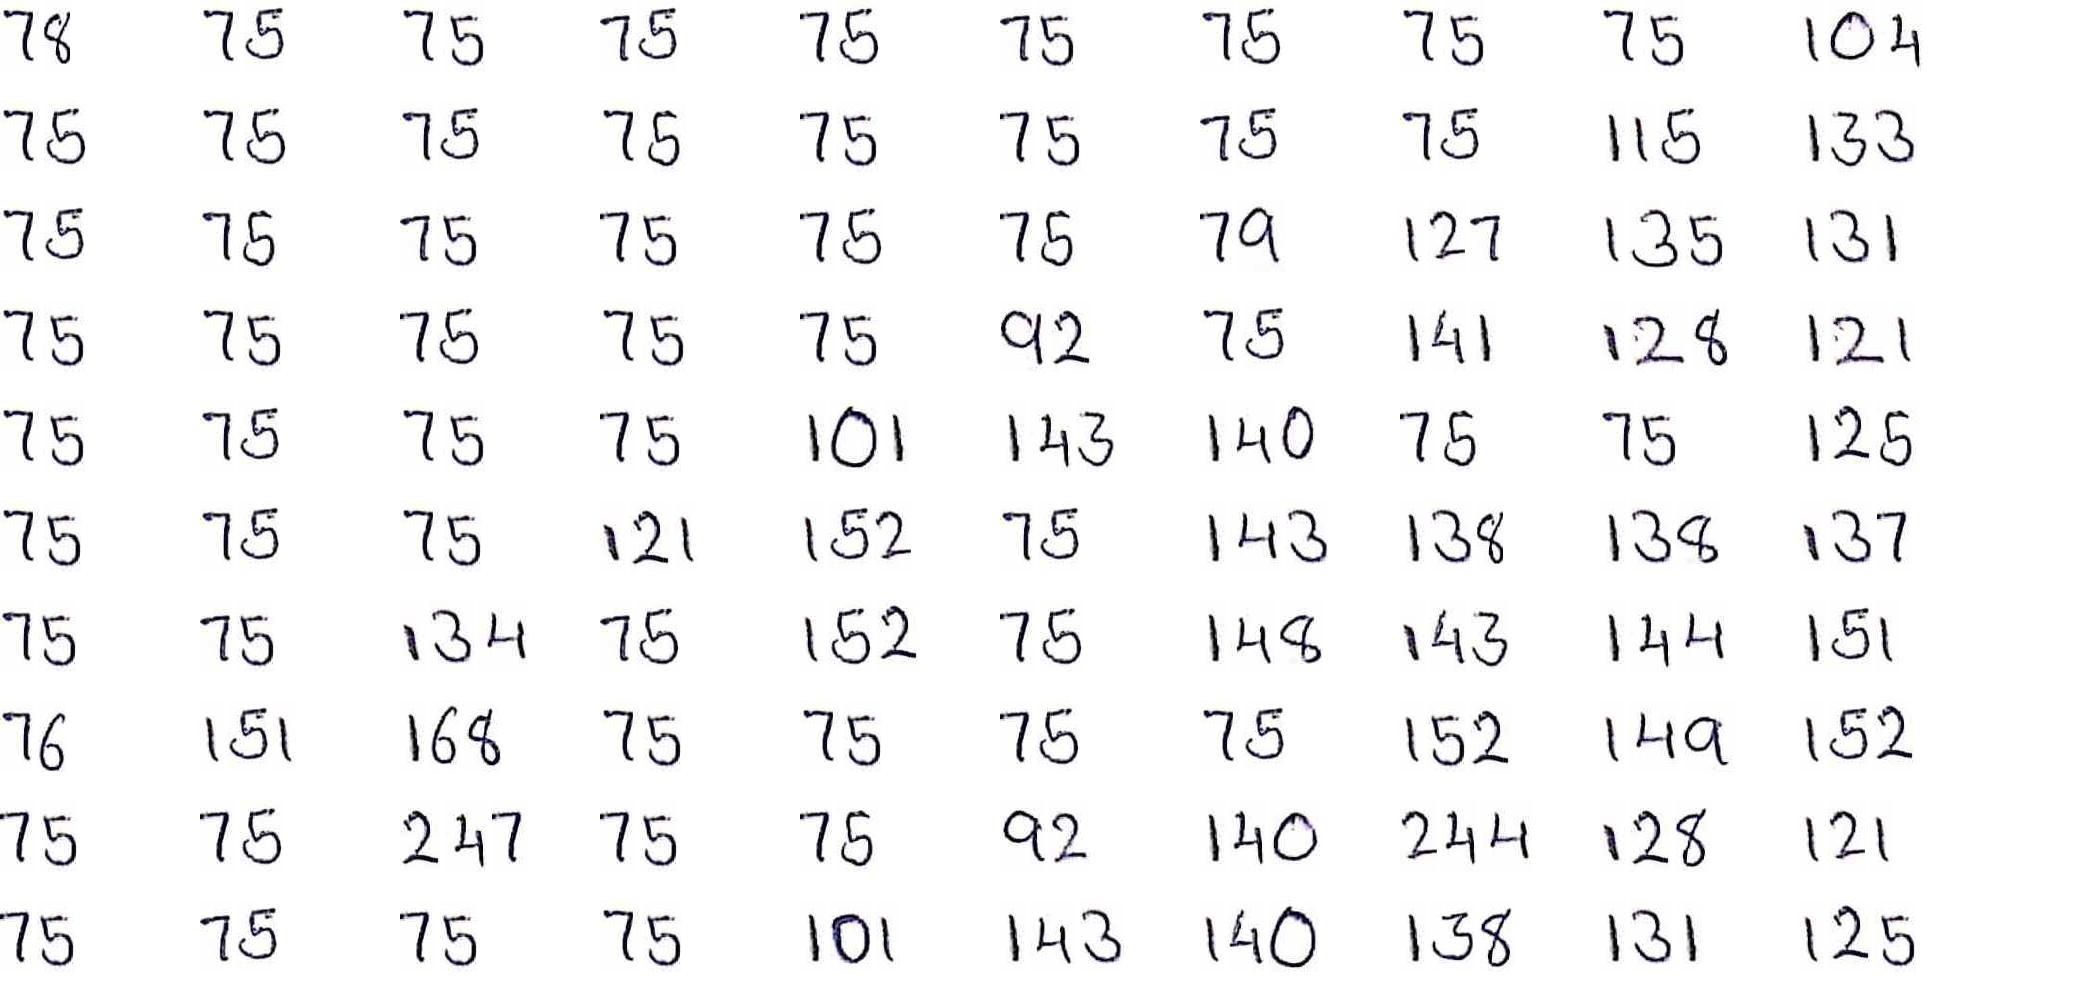 78 75 75 75 75 75 75 75 75 104
75 75 75 75 75 75 75 75 115 133
75 75 75 75 75 75 79 127 135 131
75 75 75 75 75 92 75 141 128 121
75 75 75 75 101 143 140 75 75 125
75 75 75 121 152 75 143 138 138 137
75 75 134 75 152 75 148 143 144 151
76 151 168 75 75 75 75 152 149 152
75 75 247 75 75 92 140 244 128 121
75 75 75 75 101 143 140 138 131 125